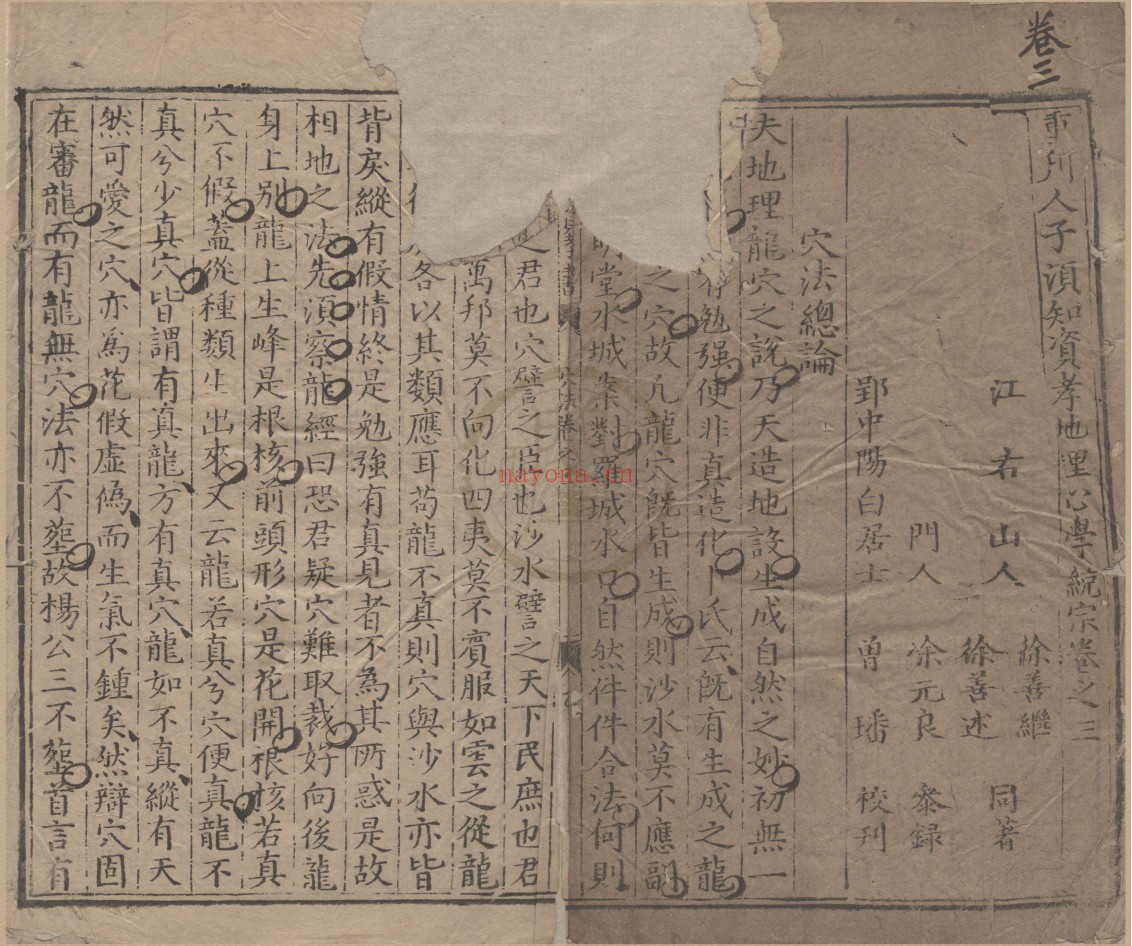 卷三
重刋人子須知資孝地理心學統宗卷之三
徐善繼
江右山人 徐善述 同著
門人 涂元良 叅録
郢中陽白居士 曽璠 校刋
穴法總論
夫地理龍穴之說乃天造地設生成自然之妙初無一
勉强便非真造化卜氏云旣有生成之龍
之穴故凢龍穴旣皆生成則沙水莫不應副
明堂水城案對羅城水口自然件件合法何則
之君也穴譬之臣也沙水譬之天下民庶也君
萬邦莫不向化四夷莫不賓服如雲之從龍
各以其類應耳苟龍不真則穴與沙水亦皆
背戾縱有假情終是勉強有真見者不為其所惑是故
相地之法先須察龍經曰恐君疑穴難取裁好向後龍
身上别龍上生峰是根核前頭形穴是花開根核若真
穴不假蓋從種類生出來又云龍若真兮穴便真龍不
真兮少真穴皆謂有真龍方有真穴龍如不真縱有天
然可愛之穴亦為花假虛僞而生氣不鍾矣然辯穴固
在審龍而有龍無穴法亦不塟故楊公三不塟首言有
nayona.cn